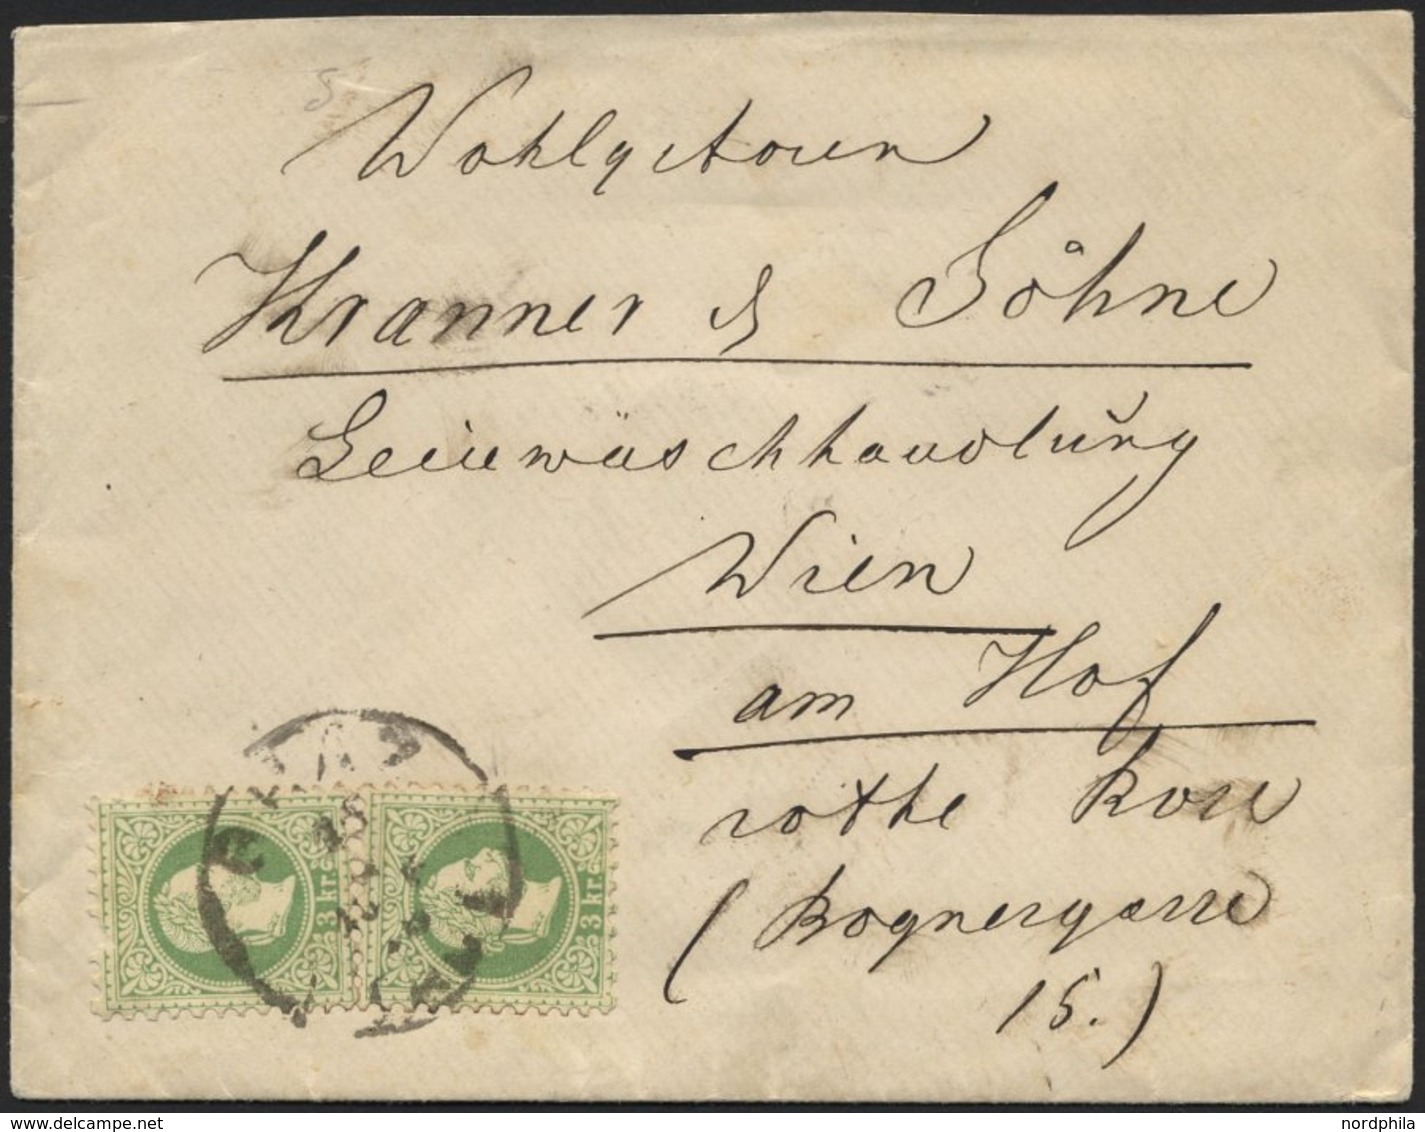 Wohlgeboren
Kranner & Söhne
Leinwäschhandlung
Wien
am Hof
rothe Rose
(Bognergasse
15.)
3 kr
3 kr
delcampe.net
nordphila